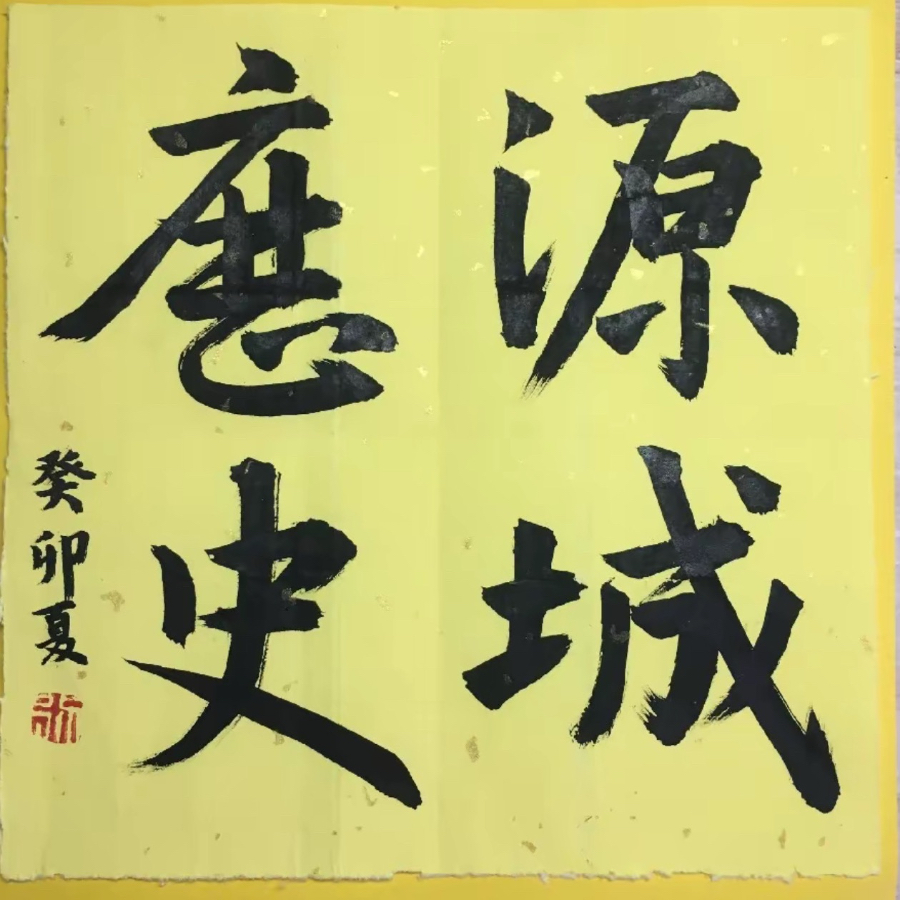 源城
歷史
癸卯夏